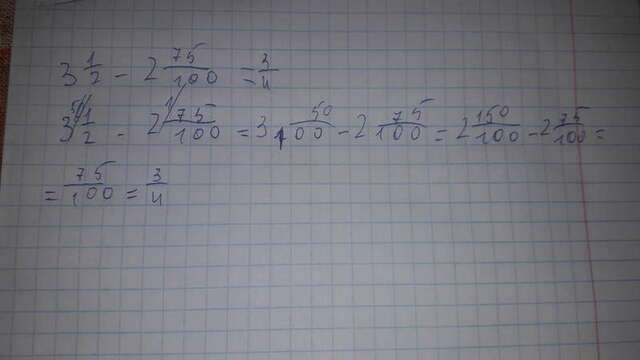 3 1/2 - 2 75/100 = 3/4
3 50/1/2 - 2 1/75/100 = 3 50/100 - 2 75/100 = 2 150/100 - 2 75/100 =
= 75/100 = 3/4